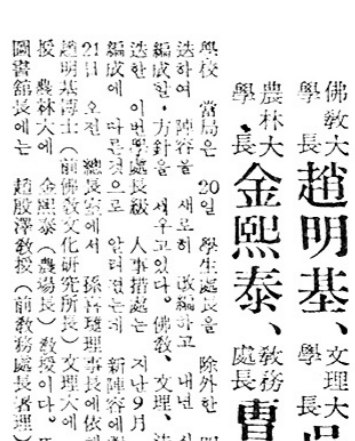 佛教大學長 趙明基、文理大學長
農林大學長 金熙泰、教務處長 曹
學校 當局은 20일 學生處長을 除外한
迭하여 陣容을 새로히 改編하고 내년
編成한 方針을 세우고있다. 佛敎、文理、
迭한 이번 學處長級 人事措處는 지난 9月
編成에 따른것으로 알려졌는데 新陣容에
21日 오전 總長室에서 孫 理事長에 依해
趙明基博士(前佛敎文化硏究所長) 文理大에
授 農林大에 金熙泰(農場長)敎授이다.
圖書館長에는 趙殷澤敎授(前敎務處長署理)